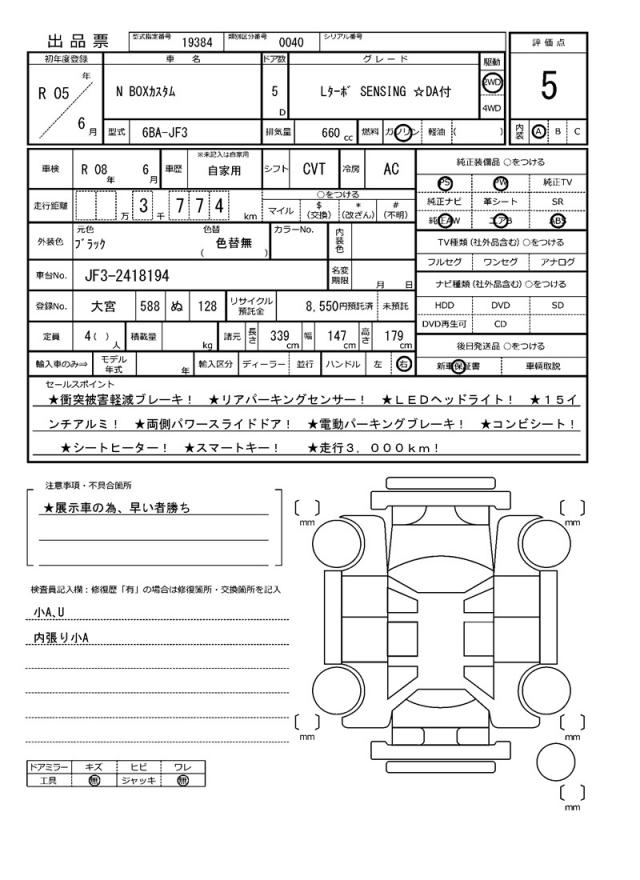 出品票
型式指定番号 19384 類別区分番号 0040 シリアル番号
初年度登録 車名 ドア数 グレード 駆動 評価点
R 05 年 6 月
N BOXカスタム 5 D Lターボ SENSING ☆DA付 2WD 4WD 5
型式 6BA-JF3 排気量 660 cc 燃料 ガソリン 軽油 ( ) 内装 A B C
車検 R 08 年 6 月 車歴 ※未記入は自家用 自家用 シフト CVT 冷房 AC
走行距離 万 3 千 7 7 4 km
○をつける
マイル $ (交換) * (改ざん) # (不明)
外装色 元色 ブラック 色替 色替無 ( ) カラーNo. 内装色
車台No. JF3-2418194 名変期限 月 日
登録No. 大宮 588 ぬ 128 リサイクル預託金 8,550円預託済 未預託
定員 4( ) 人 積載量 kg 諸元 長さ 339 cm 幅 147 cm 高さ 179 cm
輸入車のみ⇒ モデル年式 年 輸入区分 ディーラー 並行 ハンドル 左 右
純正装備品 ○をつける
PS PW 純正TV
純正ナビ 革シート SR
純正AW エアB ABS
TV種類 (社外品含む) ○をつける
フルセグ ワンセグ アナログ
ナビ種類 (社外品含む) ○をつける
HDD DVD SD
DVD再生可 CD
後日発送品 ○をつける
新車保証書 車輌取説
セールスポイント
★衝突被害軽減ブレーキ！ ★リアパーキングセンサー！ ★ＬＥＤヘッドライト！ ★１５イ
ンチアルミ！ ★両側パワースライドドア！ ★電動パーキングブレーキ！ ★コンビシート！
★シートヒーター！ ★スマートキー！ ★走行３，０００ｋｍ！
注意事項・不具合箇所
★展示車の為、早い者勝ち
検査員記入欄：修復歴「有」の場合は修復箇所・交換箇所を記入
小A､U
内張り小A
ドアミラー キズ ヒビ ワレ
工具 無 ジャッキ 無
[ ] mm
[ ] mm
[ ] mm
[ ] mm
[ ] mm